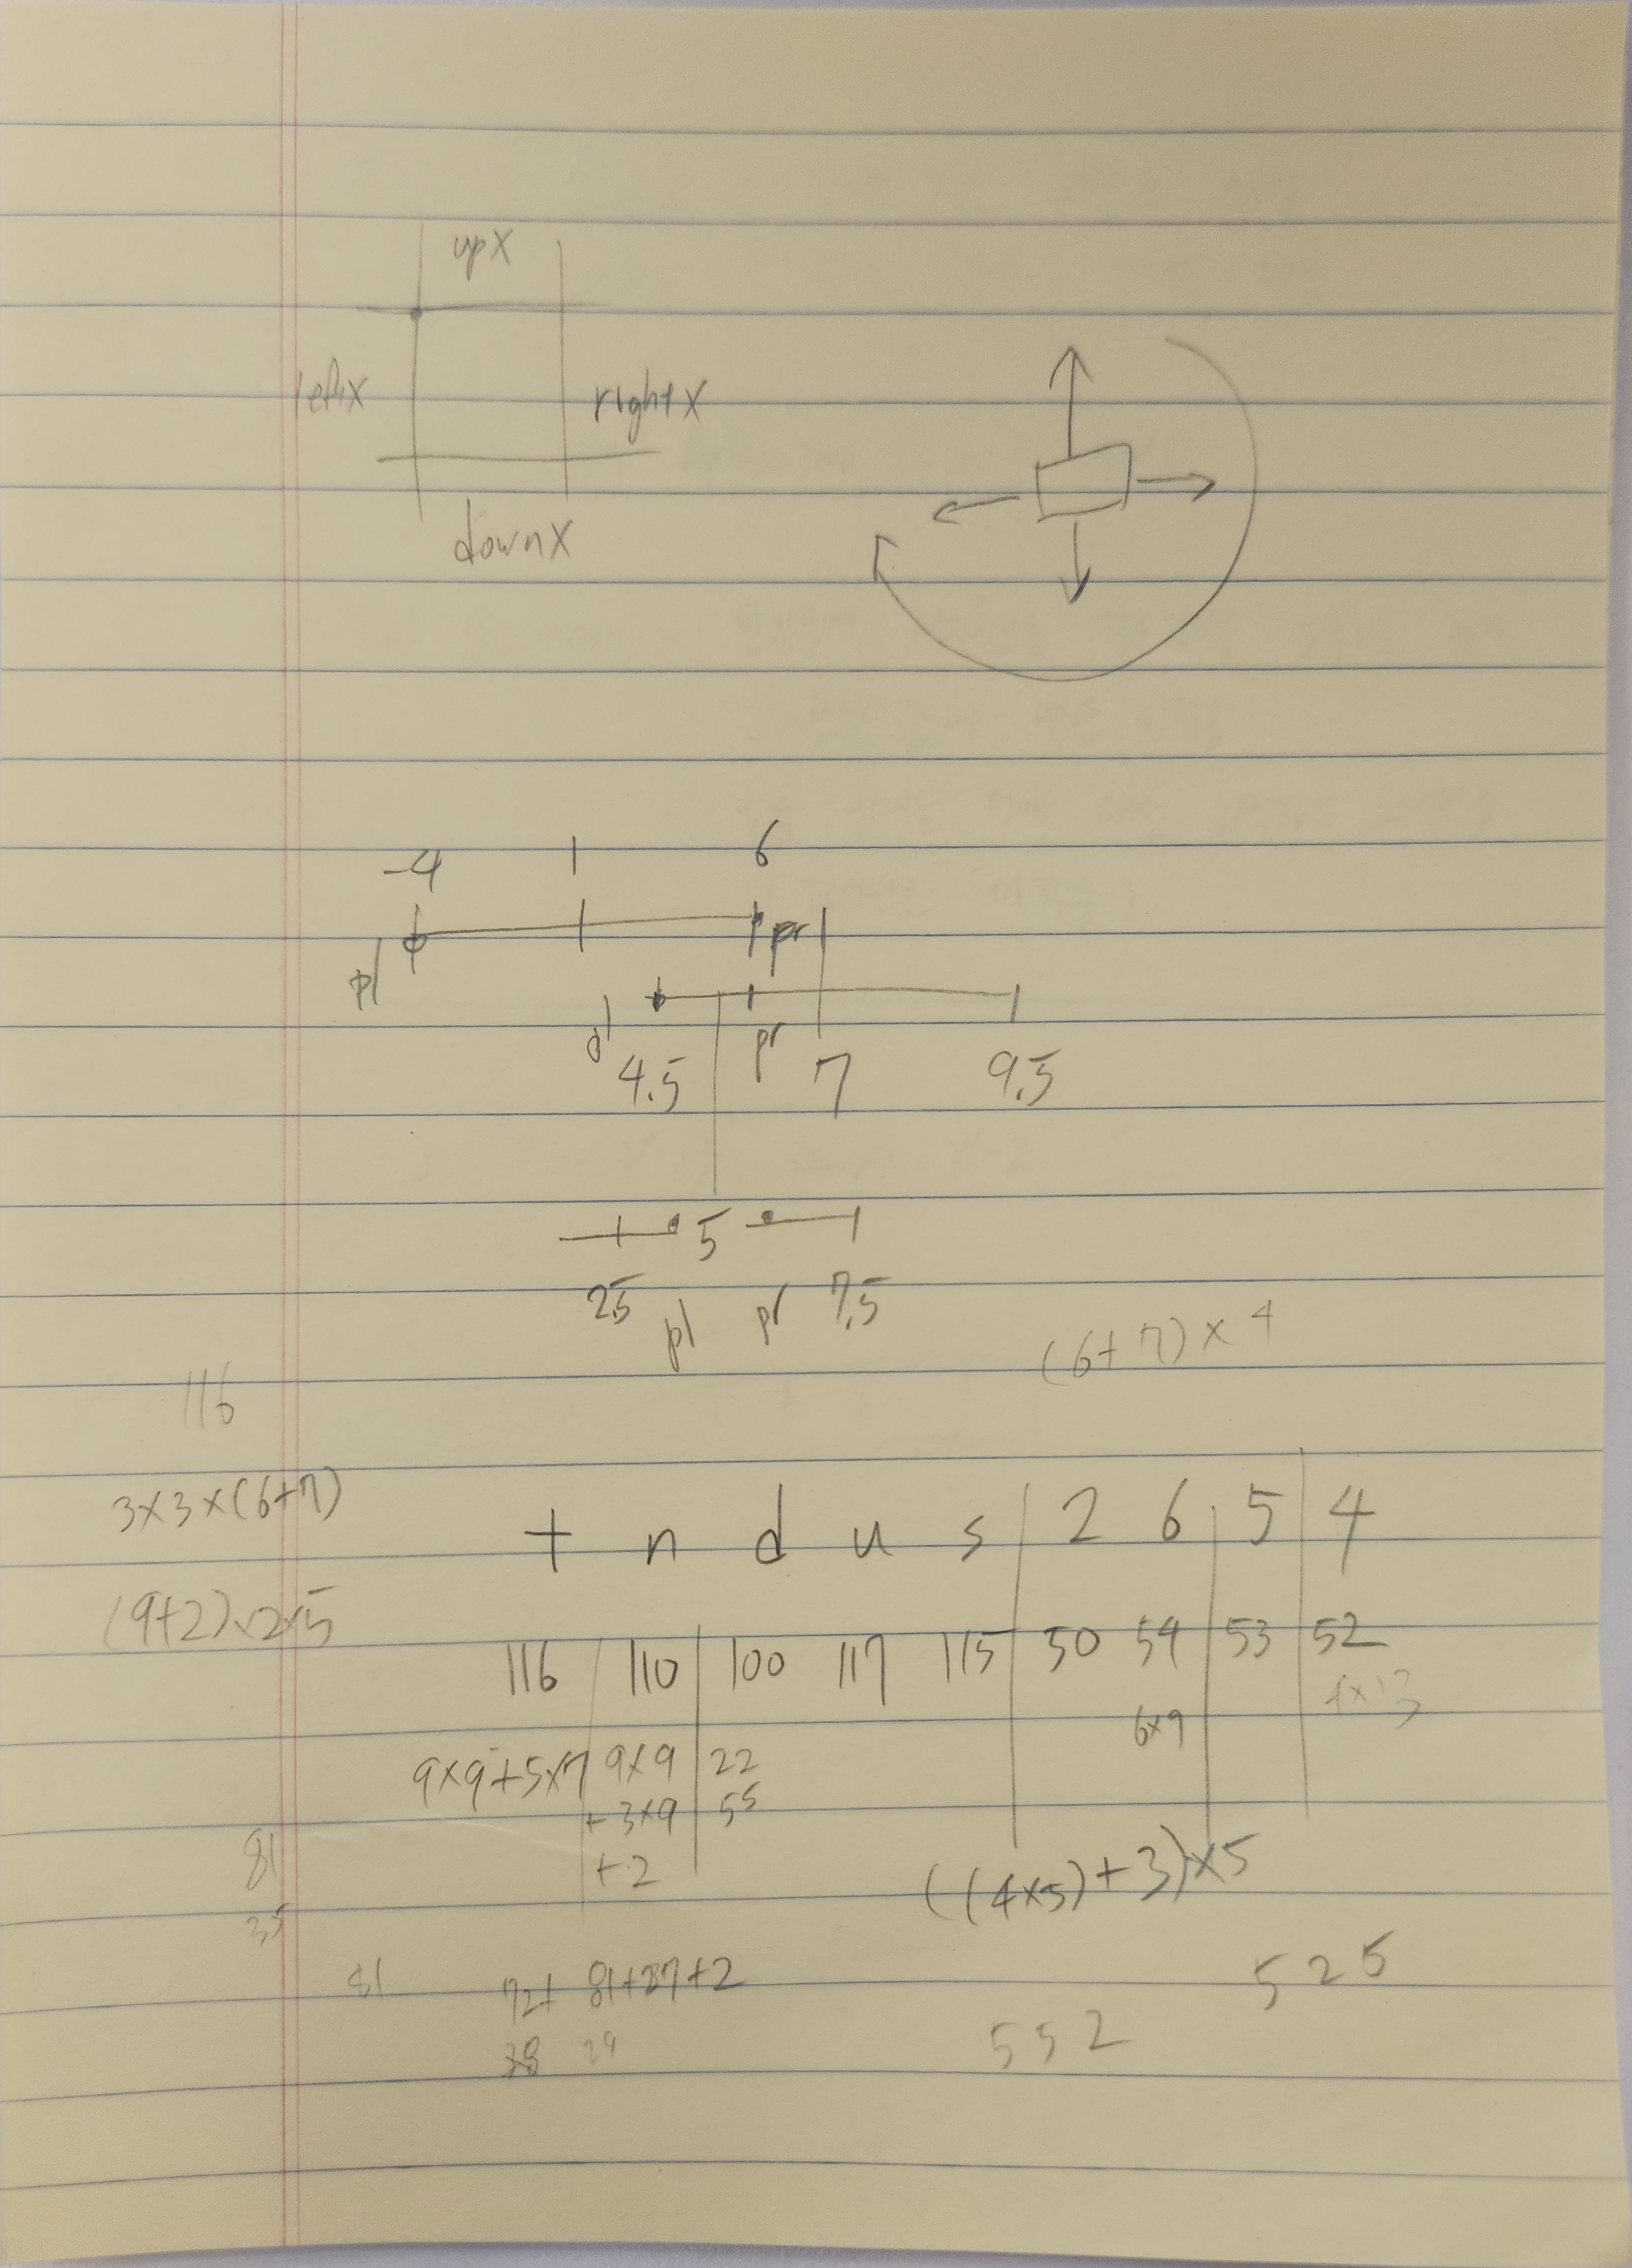 upX
leftX rightX
downX
-4 1 6
pl pr
pl pr
4.5 7 9.5
5
2.5 pl pr 7.5
(6+7)×4
116
3×3×(6+7)
t n d u s 2 6 5 4
(9+2)×2×5
116 110 100 117 115 50 54 53 52
6×9 4×13
9×9+5×7 9×9 22
+3×9 55
+2
81
((4×5)+3)×5
35
81 72+ 81+27+2 5 2 5
38 29 5 5 2